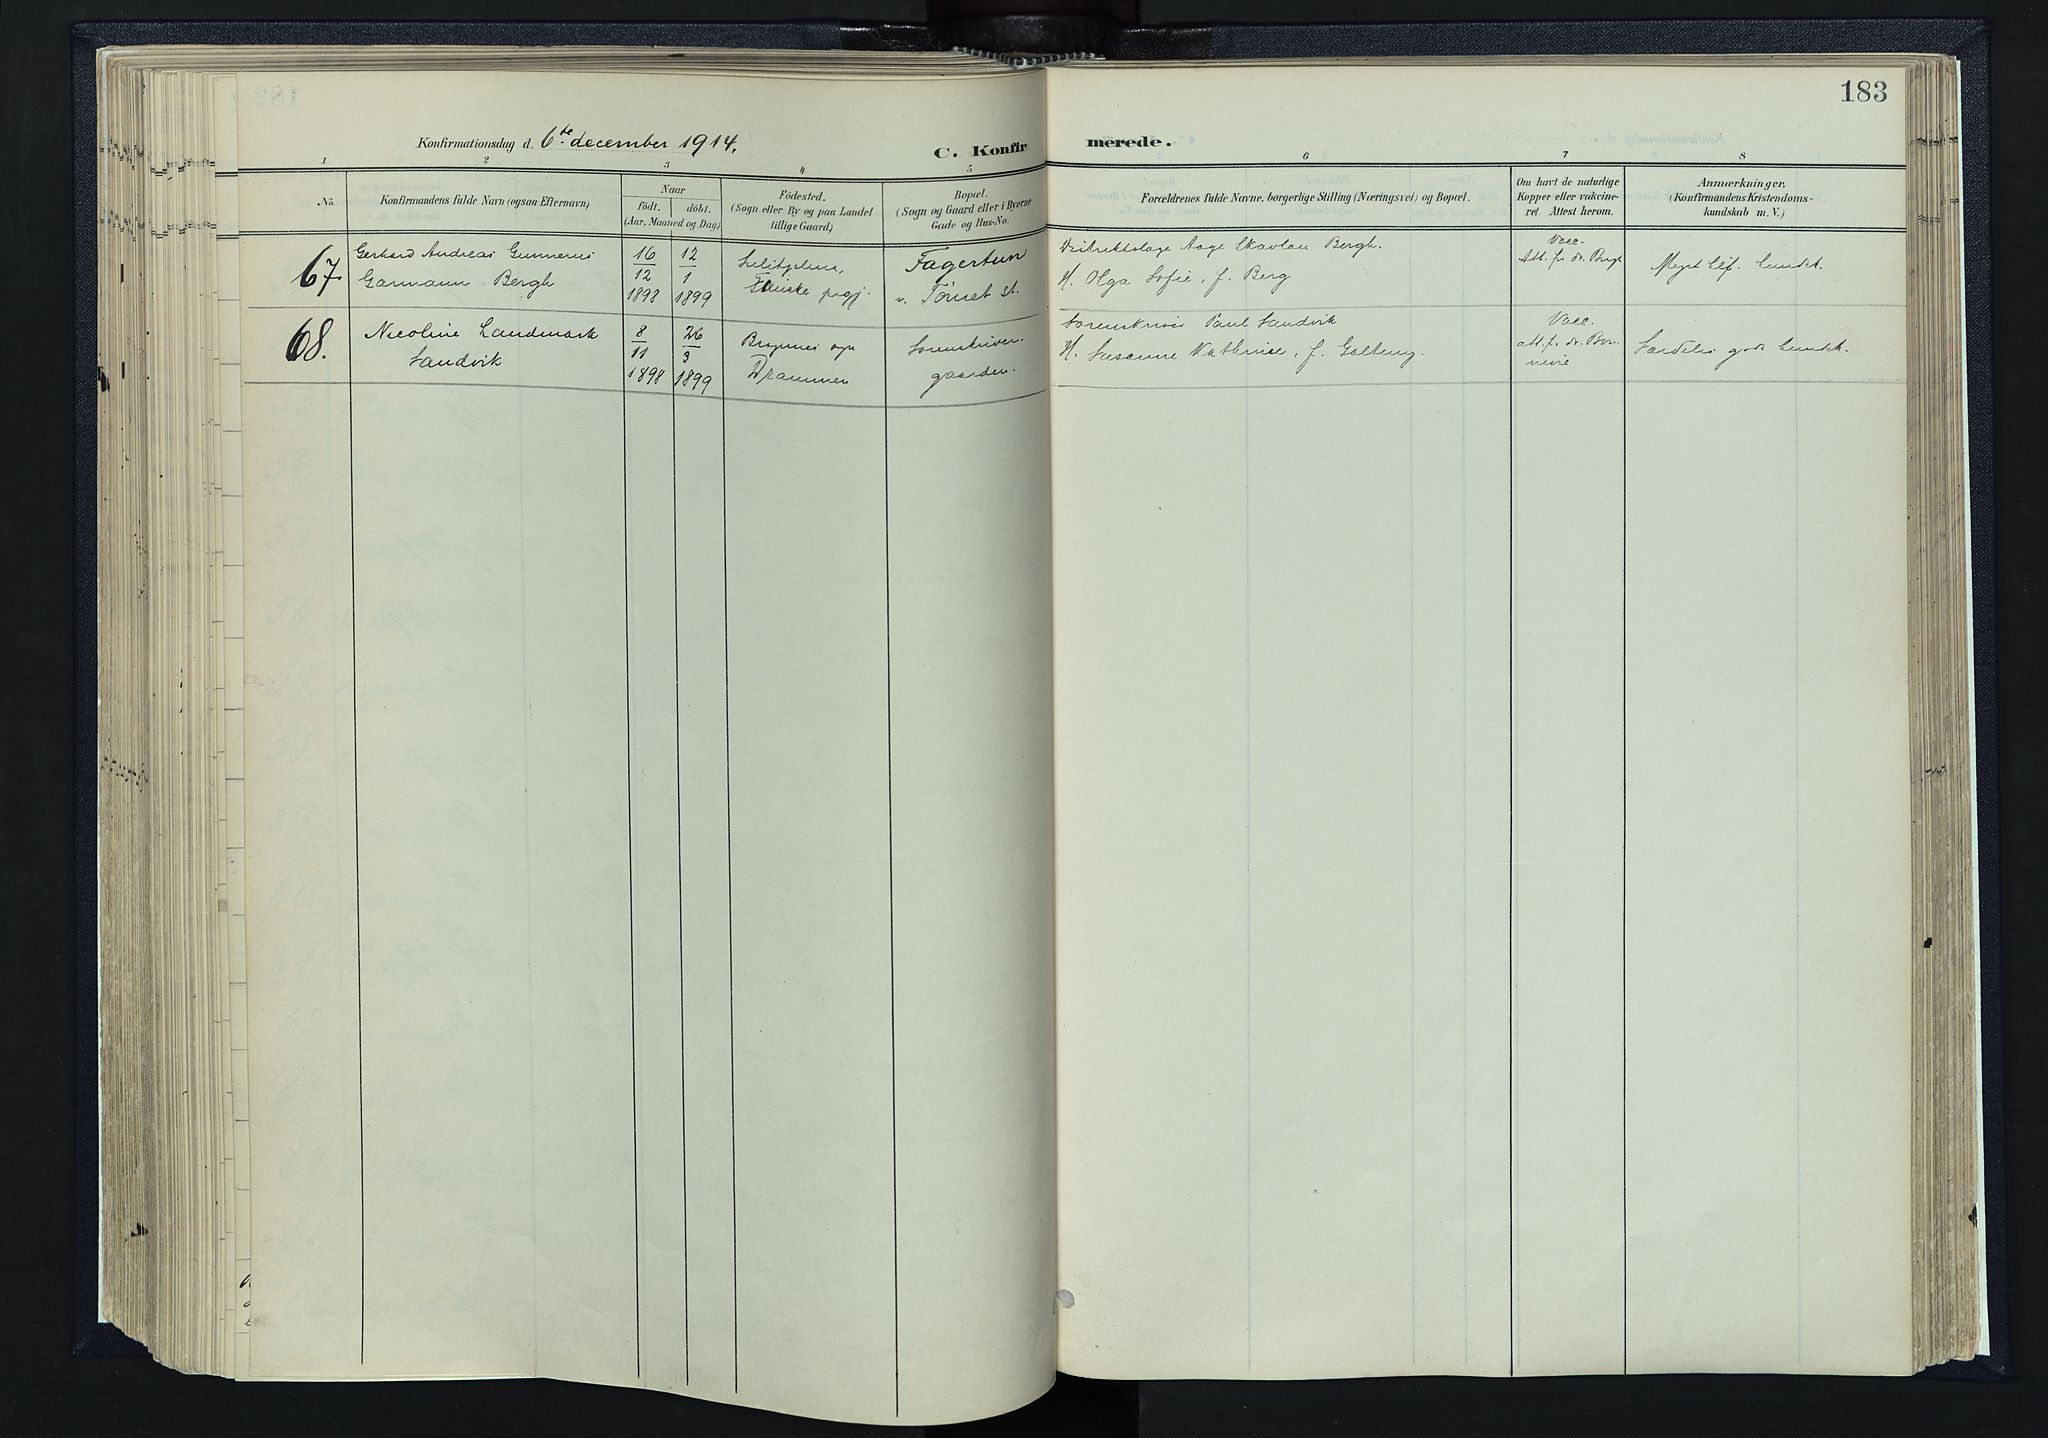 183
Konfirmationsdag d. 6te december 1914.
C. Konfirmerede.
1 2 3 4 5 6 7 8
No.
Konfirmandens fulde Navn (ogsaa Efternavn)
Naar
födt. döbt.
(Aar, Maaned og Dag)
Födested.
(Sogn eller By og paa Landet
tillige Gaard)
Bopæl.
(Sogn og Gaard eller i Byerne
Gade og Hus-No.
Forældrenes fulde Navne, borgerlige Stilling (Næringsvei) og Bopæl.
Om havt de naturlige
Kopper eller vakcine-
ret. Attest herom.
Anmærkninger.
(Konfirmandens Kristendoms-
kundskab m. V.)
67
Gerhard Andreas Gunnerus
Garmann Bergh
16/12 1898
12/1 1899
Sulitjelma,
Fauske prgj.
Fagertun
v. Tönset st.
Distriktslæge Aage Skavlan Bergh.
H. Olga Sofie, f. Berg
Vacc.
Att. fr dr. Bergh
Meget tilf. kundsk.
68.
Nicoline Landmark
Sandvik
8/11 1898
26/3 1899
Bragernes sogn
Drammen
Sorenskriver-
gaarden.
Sorenskriver Paul Sandvik
H. Susanne Kathrine, f. Galtung.
Vacc.
att. f. dr.
Særdeles god kundsk.